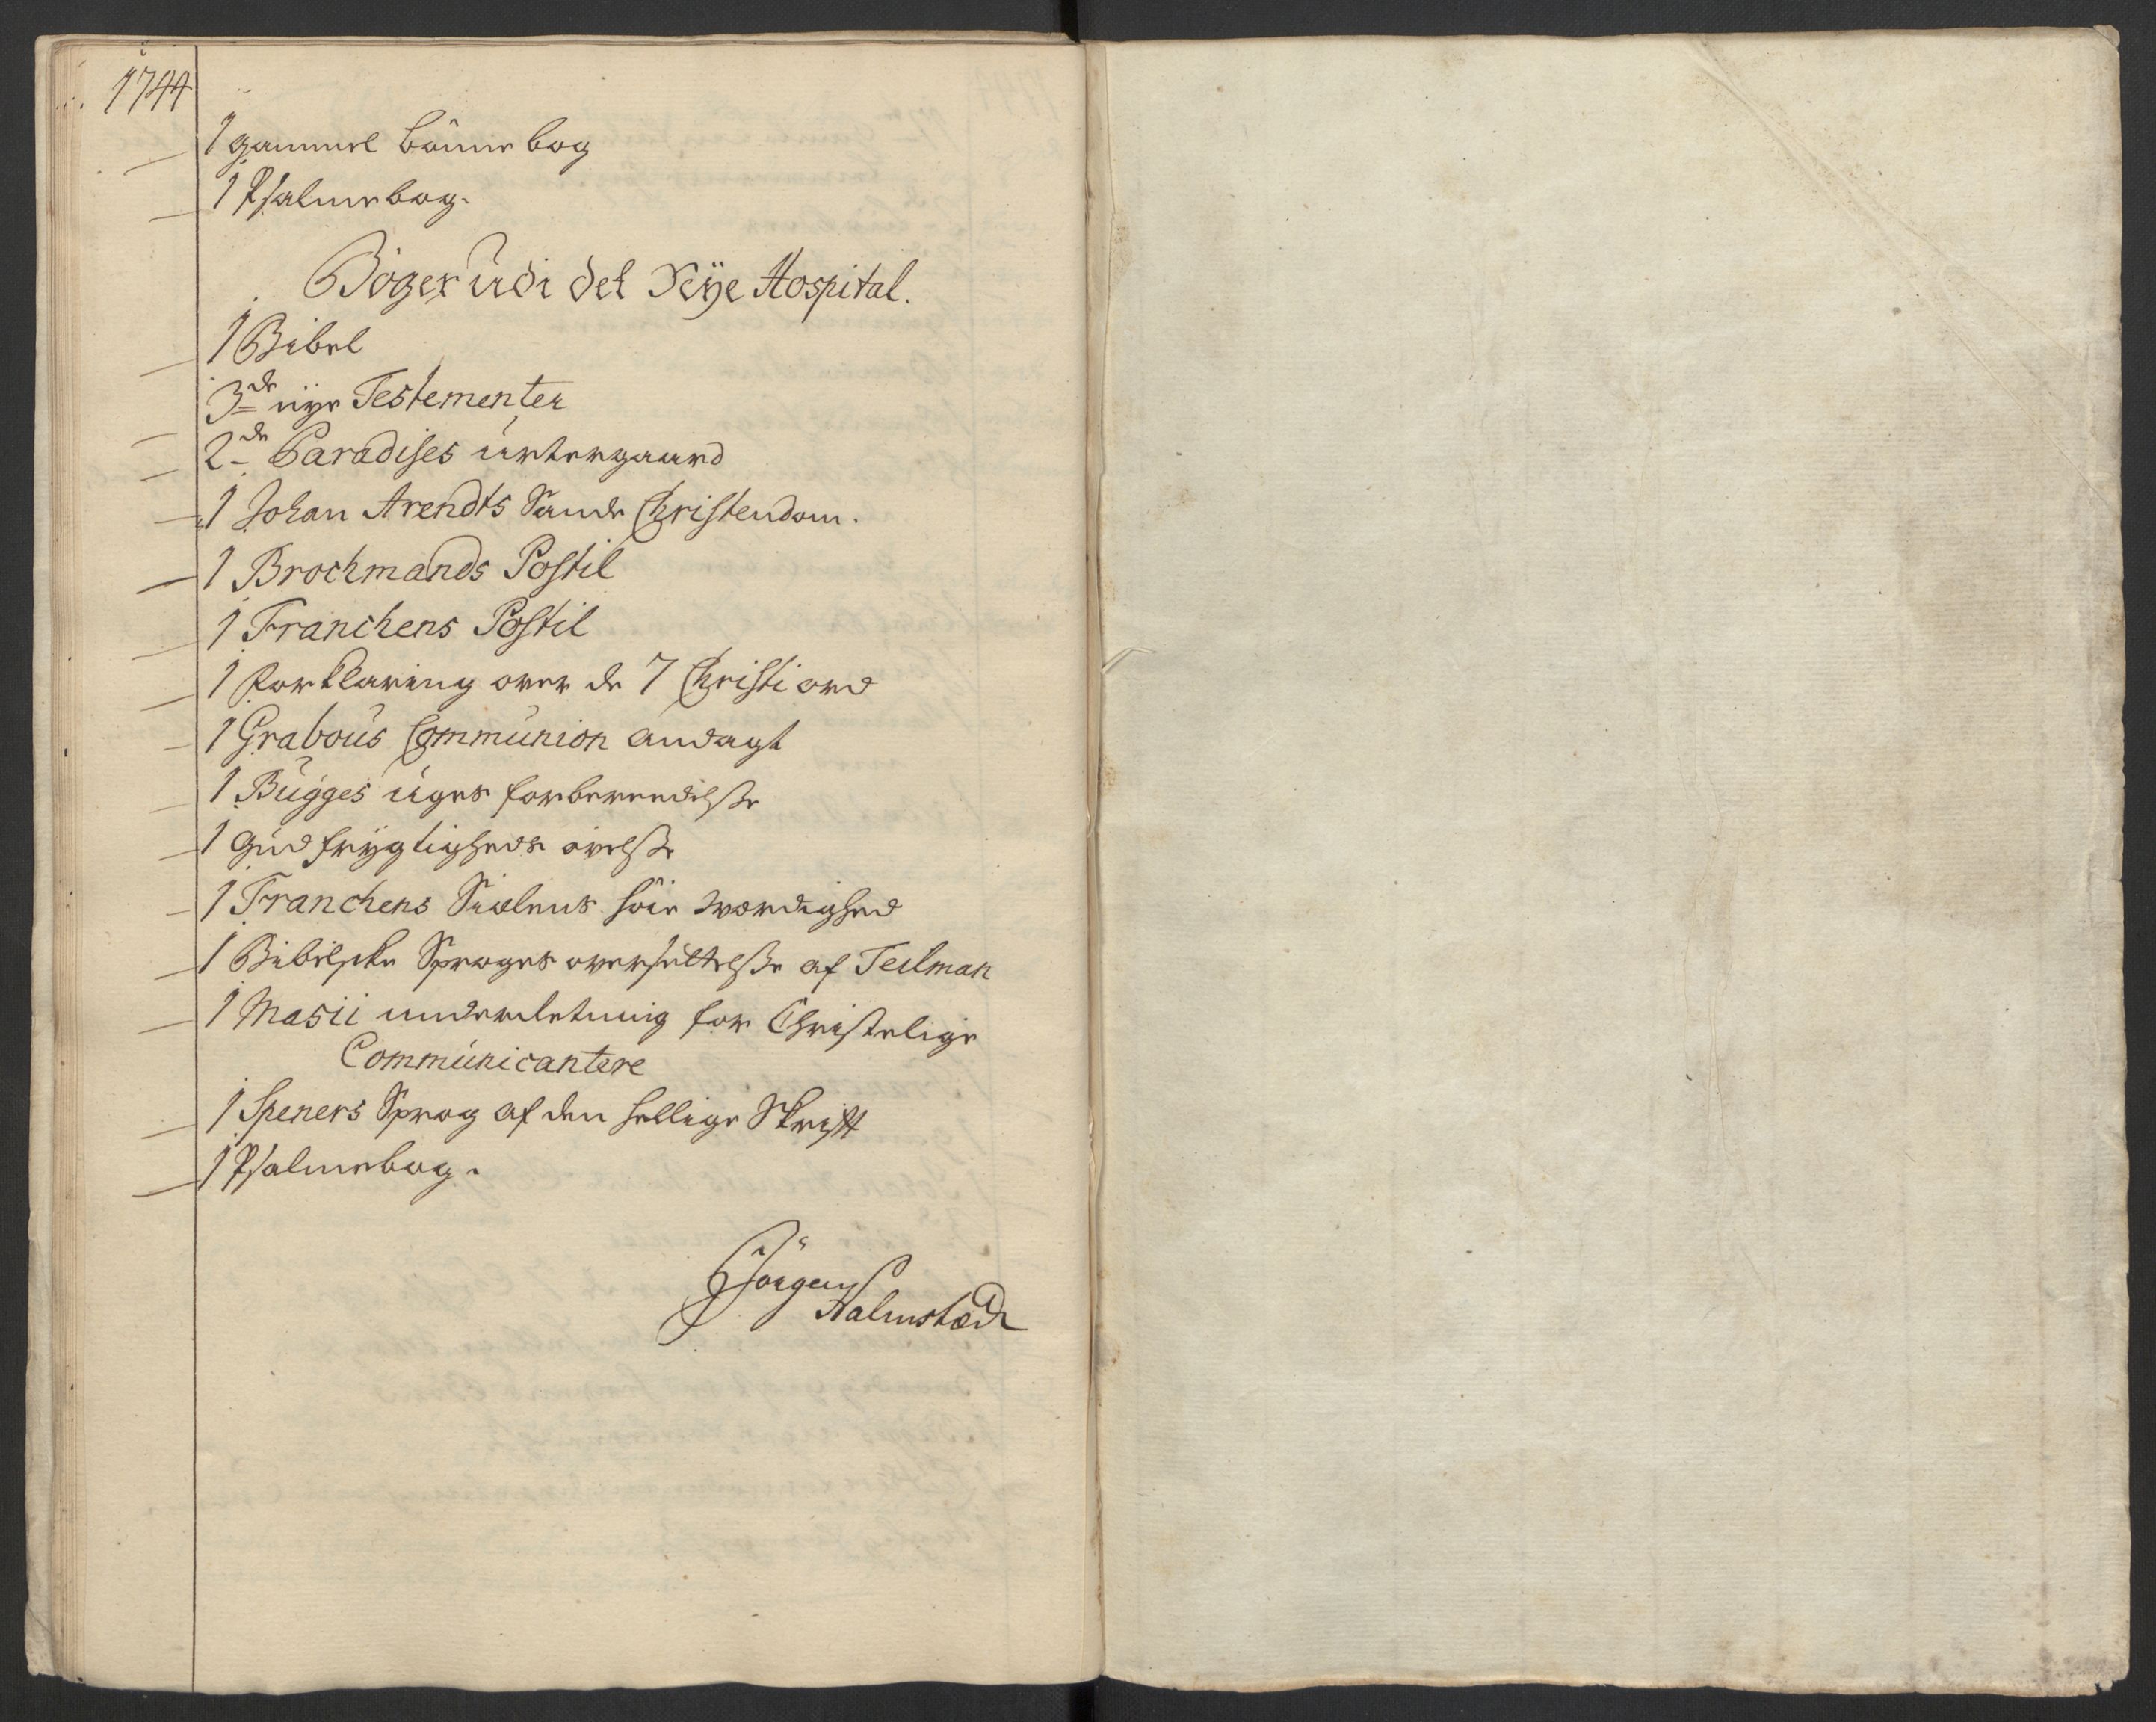 1744
1 gammel bönne bog
1 Psalmebog.
Böger udi det Nÿe Hospital.
1 Bibel
3de nÿe Testementer
2de Paradises urtegaard
1 Johan Arendts Sande Christendom.
1 Brochmands Postil
1 Franchens Postil
1 forklaring over de 7 Christi ord
1 Grabous Communion andagt
1 Bugges uges forbereedelse
1 gudfrÿgtigheds övelse
1 Franchens Siælens höie værdighed
1 Bibelske Sproges oversættelse af Teilman
1 Masii underretning for Christelige
Communicantere
1 Speners Sprog af den hellige Skrift
1 Psalmebog.
Jörgen
Halmstæd